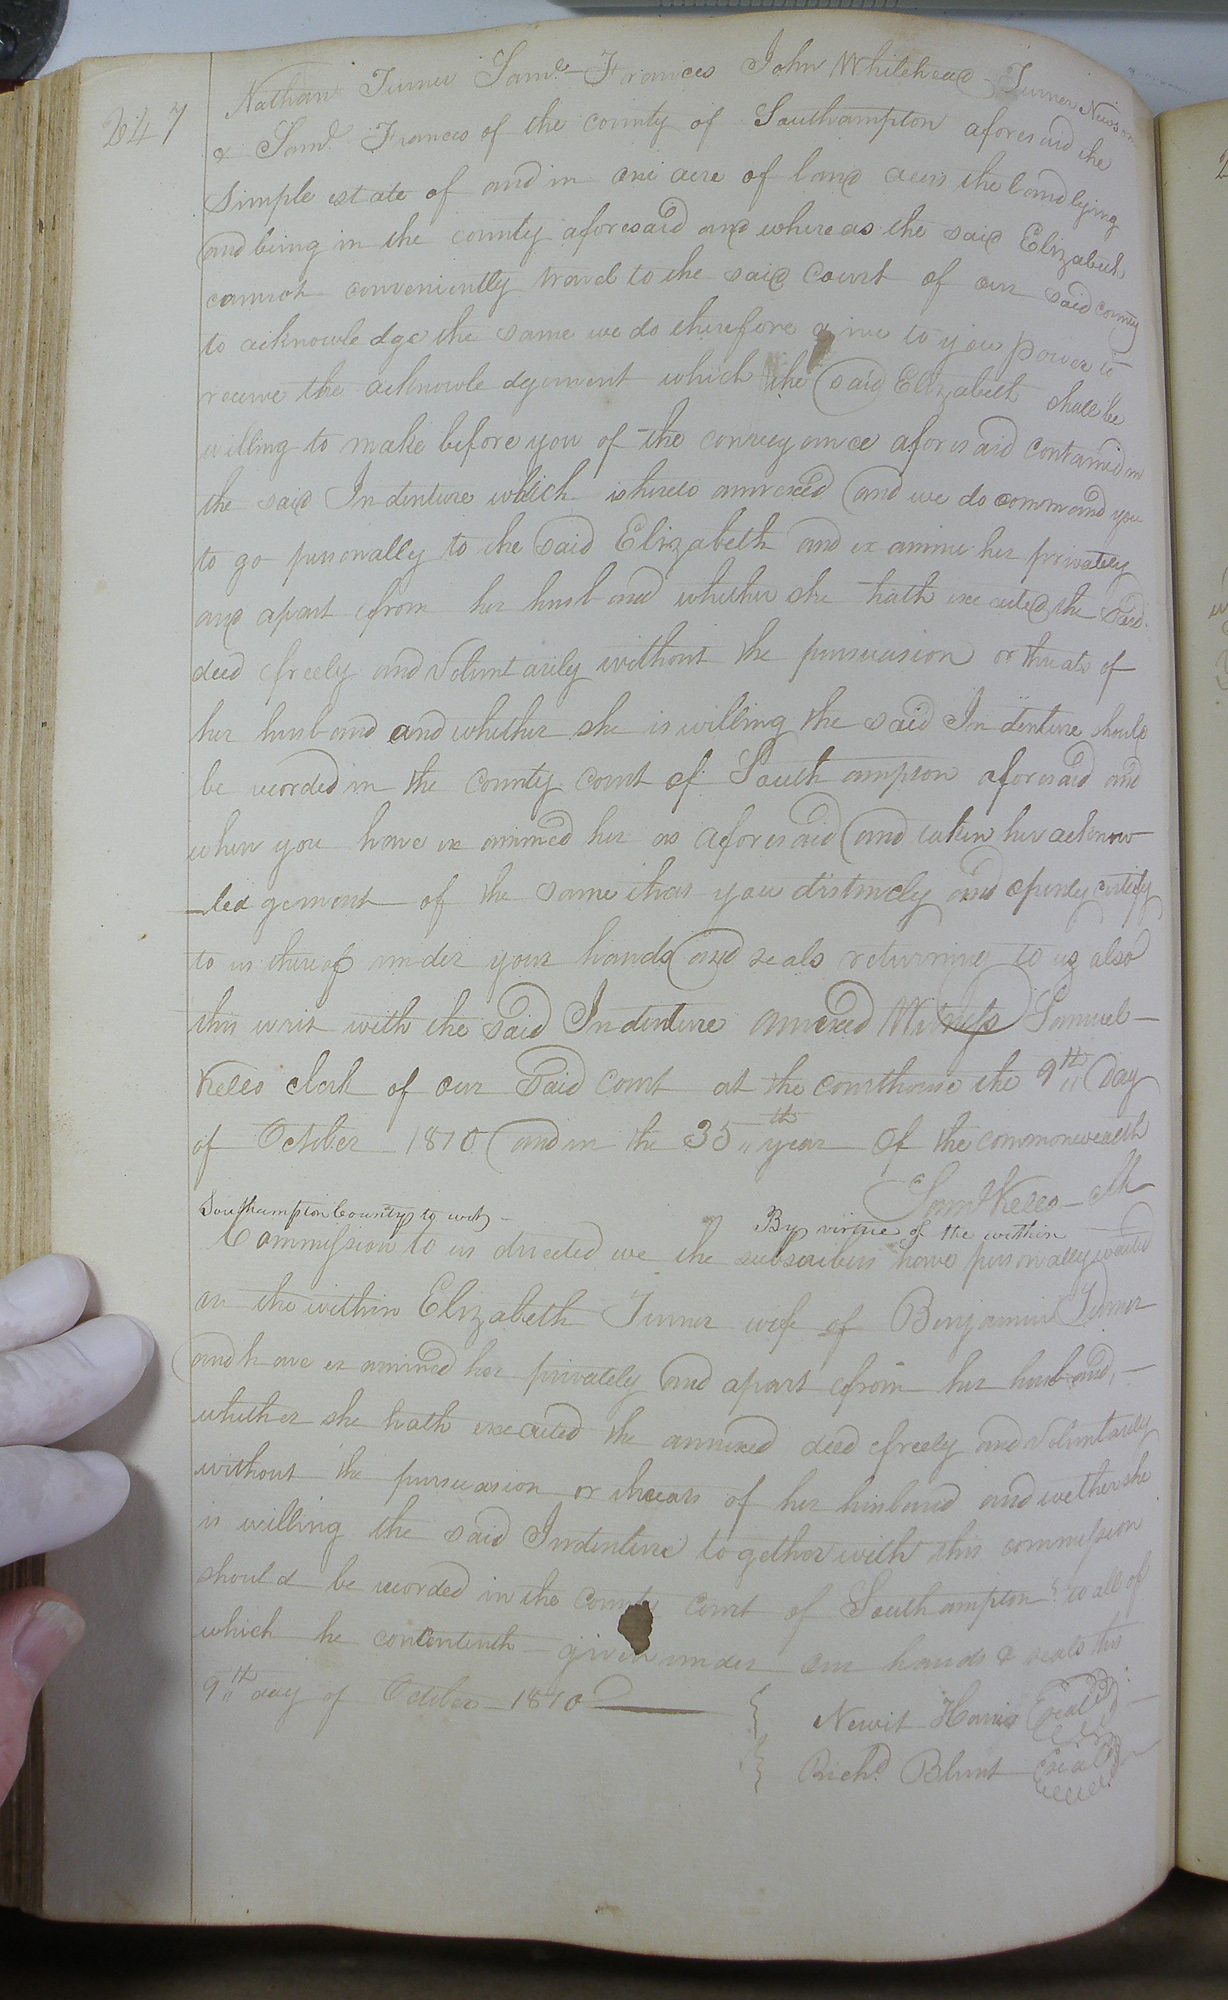 247
Nathan Turner Saml Frances John Whitehead Turner Newsom
& Saml Frances of the county of Southampton aforesaid the
Simple estate of and in one acre of land acers the land lying
and being in the county aforesaid and whereas the said Elizabeth
cannot conveniently travel to the said Court of our said county
to acknowledge the same we do therefore give to you power to
receive the acknowledgement which the said Elizabeth shall be
willing to make before you of the conveyance aforesaid contained in
the said Indenture which is hereto annexed and we do command you
to go personally to the said Elizabeth and examine her privately
and apart from her husband whether she hath executed the said
deed freely and Voluntarily without the pursuasion or threats of
her husband and whether she is willing the said Indenture should
be recorded in the county court of Southampton aforesaid and
when you have examined her as aforesaid and taken her acknow
-ledgement of the same that you distinctly and openly certify
to us thereof under your hands and seals returning to us also
this writ with the said Indenture annexed Witness Samuel-
Kello clerk of our said court at the courthouse the 9th Day
of October 1810 and in the 35th year of the commonwealth
Saml Kello - clk
Southampton County to wit - By virtue of the within
Commission to us directed we the subscribers have personally waited
on the within Elizabeth Turner wife of Benjamin Turner
and have examined her privately and apart from her husband, -
whether she hath executed the annexed deed freely and Voluntarily
without the pursuasion or threats of her husband and wether she
is willing the said Indenture together with this commission
should be recorded in the County Court of Southampton to all of
which he contenteth given under our hands & seals this
9th day of October 1810
Newit Harris Seal
Richd Blunt Seal